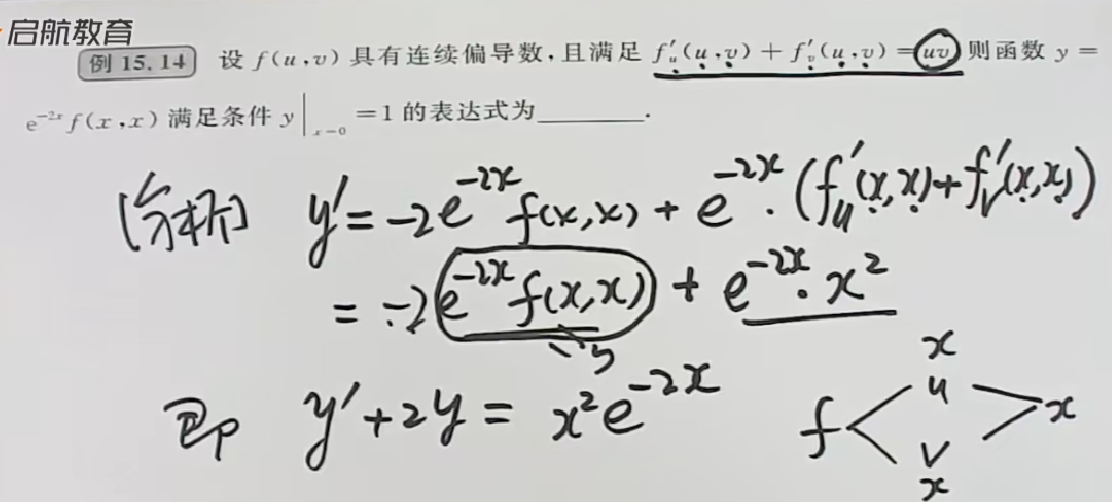 启航教育
例 15.14 设 f(u,v) 具有连续偏导数,且满足 f'_u(u,v) + f'_v(u,v) = uv 则函数 y =
e^{-2x} f(x,x) 满足条件 y|_{x=0} = 1 的表达式为________.
[分析] y' = -2e^{-2x} f(x,x) + e^{-2x} · (f'_u(x,x) + f'_v(x,x))
= -2e^{-2x} f(x,x) + e^{-2x} · x^2
y
即 y' + 2y = x^2 e^{-2x}
x
f < u > x
v
x